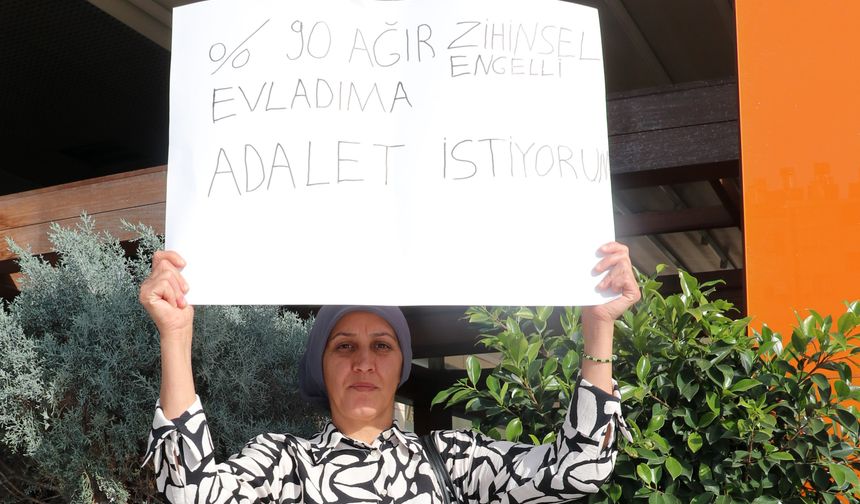 % 90 AĞIR ZİHİNSEL
ENGELLİ
EVLADIMA
ADALET İSTİYORUM